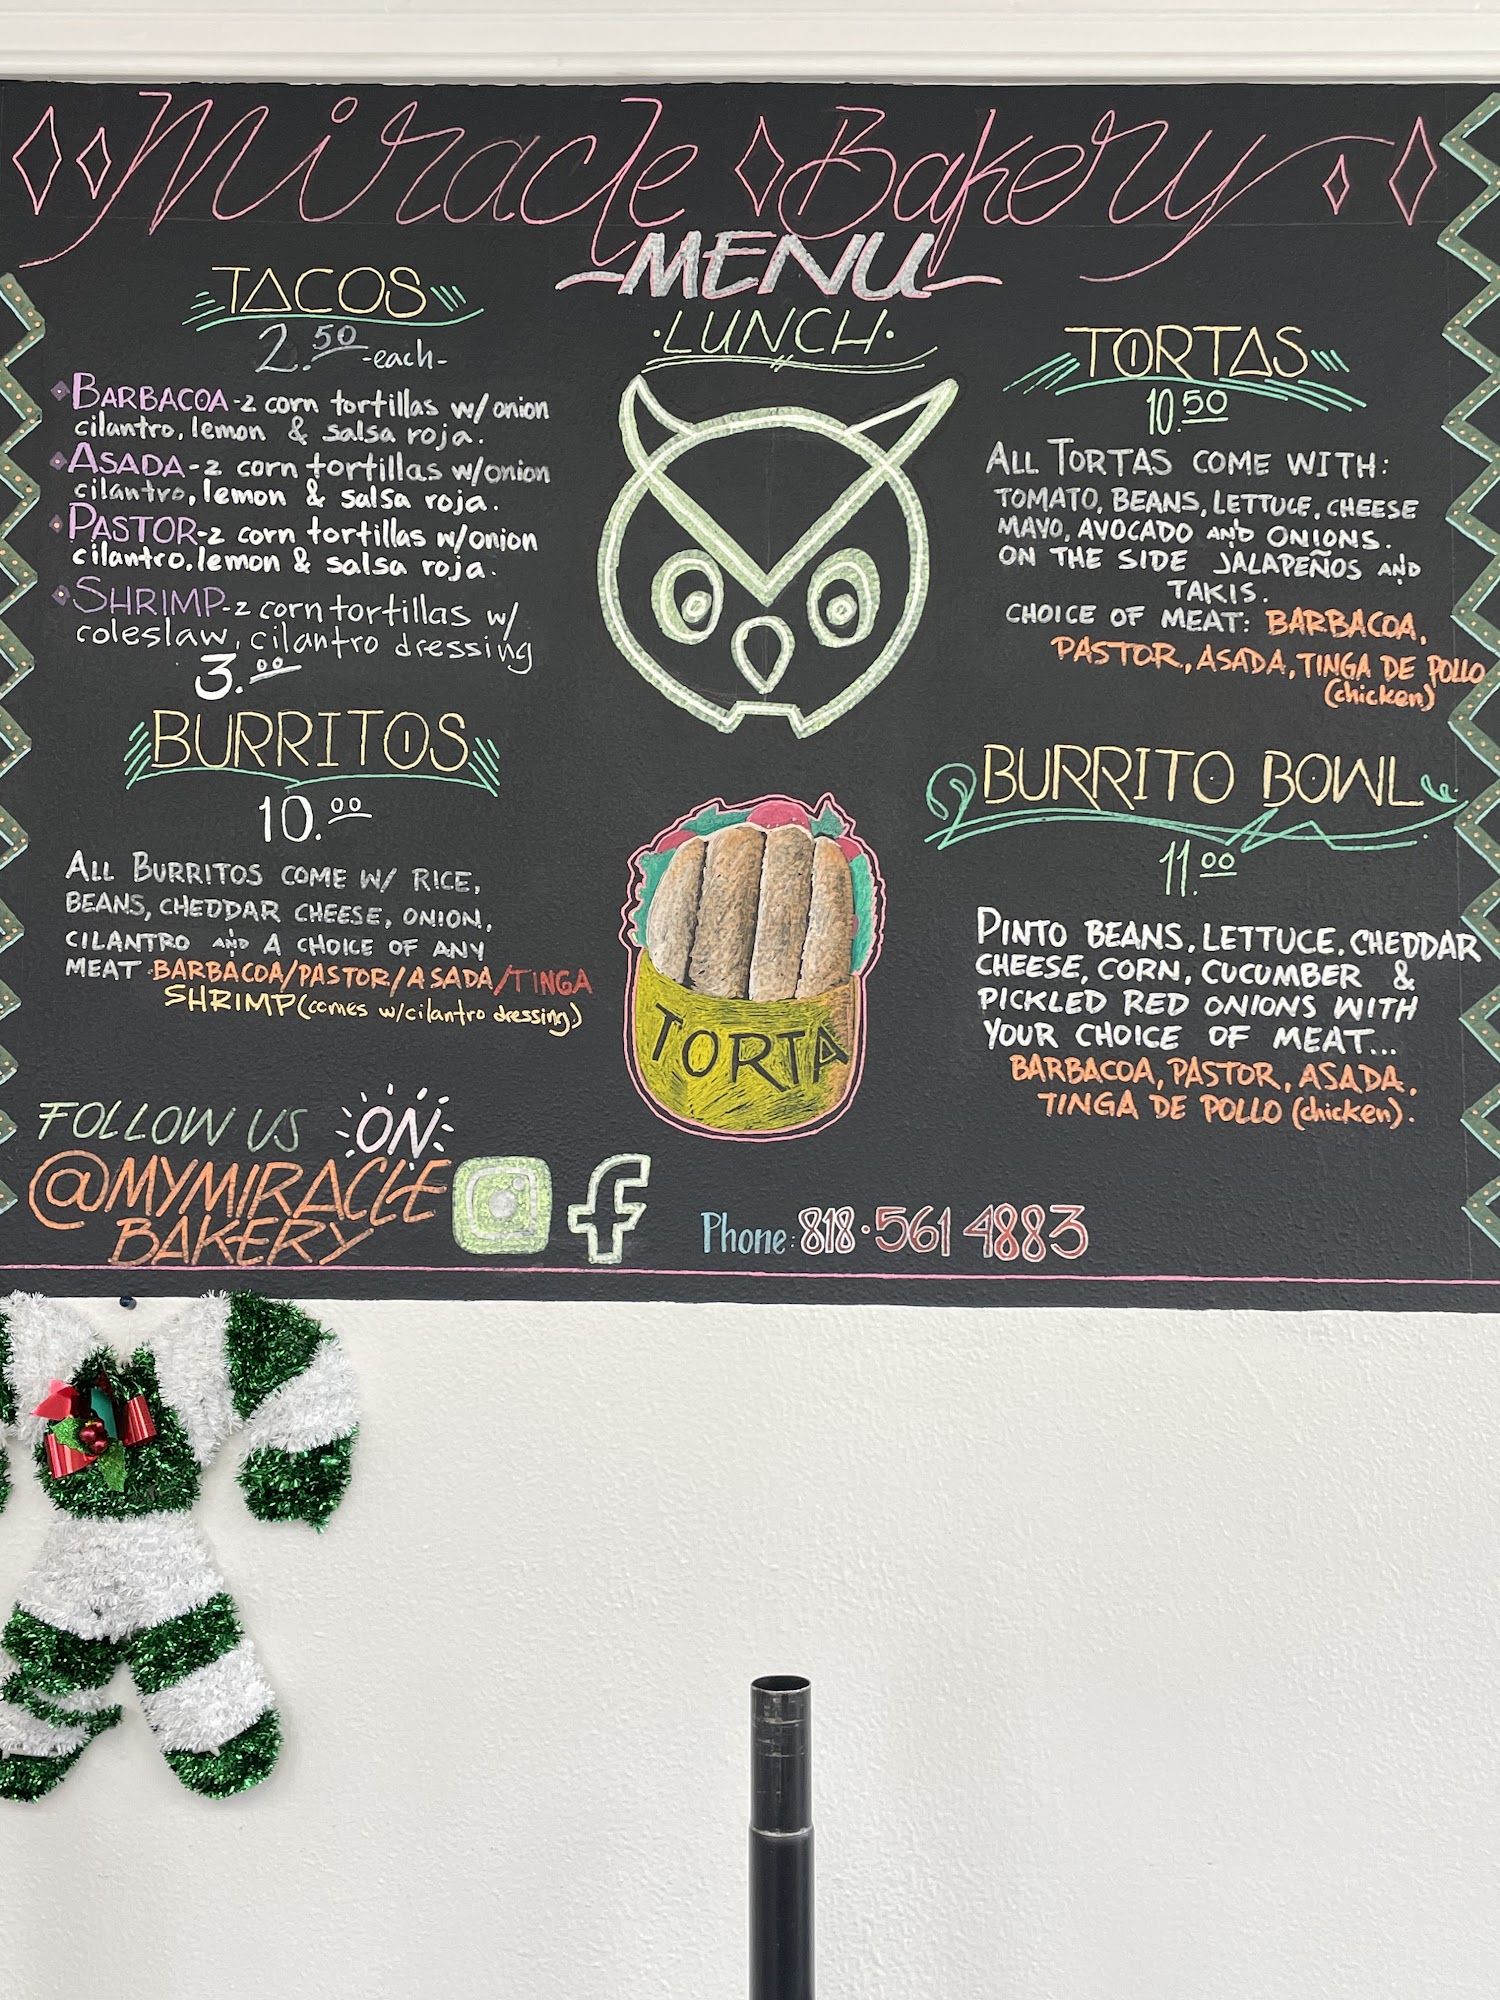 Miracle Bakery
MENU
LUNCH
TACOS
2.50 -each-
BARBACOA-2 corn tortillas w/onion
cilantro, lemon & salsa roja.
ASADA-2 corn tortillas w/onion
cilantro, lemon & salsa roja.
PASTOR-2 corn tortillas w/onion
cilantro, lemon & salsa roja.
SHRIMP-2 corn tortillas w/
coleslaw, cilantro dressing
3.00
BURRITOS
10.00
ALL BURRITOS COME W/ RICE,
BEANS, CHEDDAR CHEESE, ONION,
CILANTRO AND A CHOICE OF ANY
MEAT BARBACOA/PASTOR/ASADA/TINGA
SHRIMP (comes w/cilantro dressing)
TORTAS
10.50
ALL TORTAS COME WITH:
TOMATO, BEANS, LETTUCE, CHEESE
MAYO, AVOCADO AND ONIONS.
ON THE SIDE JALAPEÑOS AND
TAKIS.
CHOICE OF MEAT: BARBACOA,
PASTOR, ASADA, TINGA DE POLLO
(chicken)
BURRITO BOWL
11.00
PINTO BEANS, LETTUCE, CHEDDAR
CHEESE, CORN, CUCUMBER &
PICKLED RED ONIONS WITH
YOUR CHOICE OF MEAT...
BARBACOA, PASTOR, ASADA,
TINGA DE POLLO (chicken).
TORTA
FOLLOW US ON
@MYMIRACLE
BAKERY
Phone: 818·561 4883